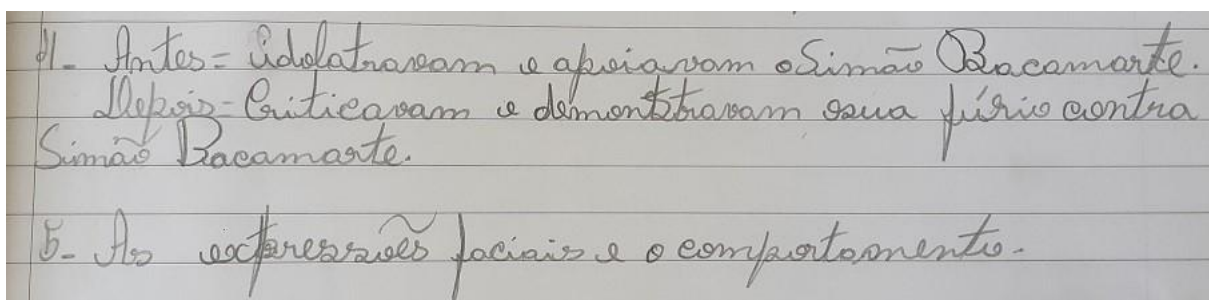 4- Antes= idolatravam e apoiavam o Simão Bacamarte.
Depois- Criticavam e demonstravam sua fúria contra
Simão Bacamarte.
5- As expressões faciais e o comportamento.